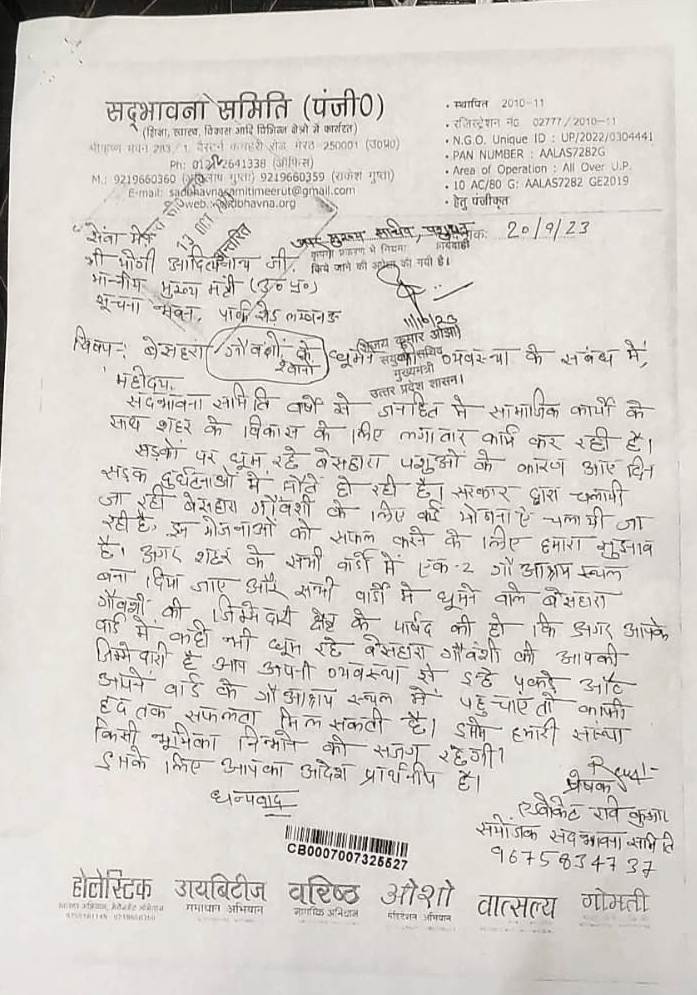 सद्भावना समिति (पंजी0)
(शिक्षा, स्वास्थ, विकास आदि विभिन्न क्षेत्रो में कार्यरत)
283 / 1, वैस्टर्न कचहरी रोड मेरठ 250001 (उ0प्र0)
Ph: 2641338 (ऑफिस)
M.: 9219660360 गुप्ता) 9219660359 (राकेश गुप्ता)
E-mail: sadbhavnasamitimeerut@gmail.com
web.
• स्थापित 2010-11
• रजिस्ट्रेशन नं0 02777 / 2010-11
• N.G.O. Unique ID : UP/2022/0304441
• PAN NUMBER : AALAS7282G
• Area of Operation : All Over U.P.
• 10 AC/80 G: AALAS7282 GE2019
• हेतु पंजीकृत
20/9/23
सेवा में
श्री योगी आदित्यनाथ जी
माननीय मुख्य मंत्री (उ० प्र०)
सूचना भवन, पार्क रोड लखनऊ
अपर मुख्य सचिव, पशुधन
कृपया प्रकरण में नियमा कार्यवाही
किये जाने की अपेक्षा की गयी है।
11/10/23
(विजय कुमार ओझा)
संयुक्त सचिव
मुख्यमंत्री
उत्तर प्रदेश शासन।
विषय:- बेसहारा गौवंशो के घूमने व्यवस्था के संबंध में,
महोदय,
सदभावना समिति वर्षो से जनहित मे सामाजिक कार्यो के
साथ शहर के विकास के लिए लगातार कार्य कर रही है।
सड़कों पर घूम रहे बेसहारा पशुओं के कारण आए दिन
सड़क दुर्घटनाओ मे मौतें हो रही है। सरकार द्वारा चलायी
जा रही बेसहारा गौवंशी के लिए कई योजनाएं चलायी जा
रही है, इन योजनाओं को सफल करने के लिए हमारा सुझाव
है। अगर शहर के सभी वार्डो में एक-2 गौ आश्रय स्थल
बना दिया जाए और सभी वार्डो मे घूमने वाले बेसहारा
गौवंशी की जिम्मेदारी क्षेत्र के पार्षद की हो कि अगर आपके
वार्ड में कही भी घूम रहे बेसहारा गौवंशी की आपकी
जिम्मेदारी है आप अपनी व्यवस्था से इन्हे पकडे और
अपने वार्ड के गौ आश्रय स्थल में पहुचाएं तो काफी
हद तक सफलता मिल सकती है। इसमे हमारी संस्था
किसी भूमिका निभाने को सजग रहेगी।
इसके लिए आपका आदेश प्रार्थनीय है।
धन्यवाद
प्रेषक
एडवोकेट रवि कुमार
संयोजक सदभावना समिति
9675834737
CB0007007325527
होलेस्टिक डायबिटीज वरिष्ठ ओशो वात्सल्य गोमती
समाधान अभियान नागरिक अभियान अभियान